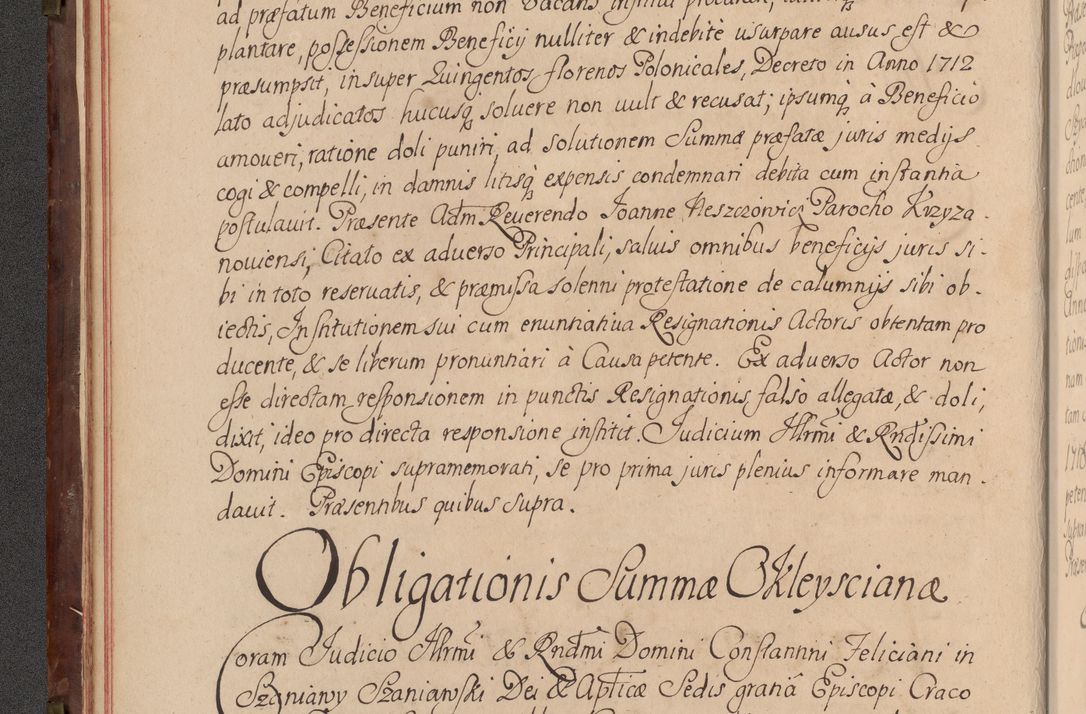 ad præfatum Beneficium non vacans
plantare, possessionem Beneficij nulliter & indebitè usurpare ausus est &
præsumpsit, insuper Quingentos florenos Polonicales, Decreto in Anno 1712
lato adjudicatos hucusq́ soluere non uult & recusat; ipsumq́ à Beneficio
amoueri, ratione doli puniri, ad solutionem Summæ præfatæ juris medijs
cogi & compelli, in damnis litisq́ expensis condemnari debita cum instantia
postulauit. Præsente Adm̃ Reuerendo Joanne Parocho Krzyza-
nouiensi, Citato ex aduerso Principali, saluis omnibus beneficijs juris si-
bi in toto reseruatis, & præmissa solenni protestatione de calumnijs sibi ob-
iectis, Institutionem sui cum enuntiatiua Resignationis Actoris obtentam pro
ducente, & se liberum pronuntiari à Causa petente. Ex aduerso Actor non
esse directam responsionem in punctis Resignationis falso allegatæ, & doli,
dixit, ideo pro directa responsione institit. Judicium Illrmi & Rndissimi
Domini Episcopi supramemorati, se pro prima juris plenius informare man-
dauit. Præsentibus quibus supra.
Obligationis Summæ Okleyscianæ
Coram Judicio Illrmi & Rndmi Domini Constantini Feliciani in
Szaniawy Szaniawski Dei & Aplicæ Sedis gratiâ Episcopi Craco